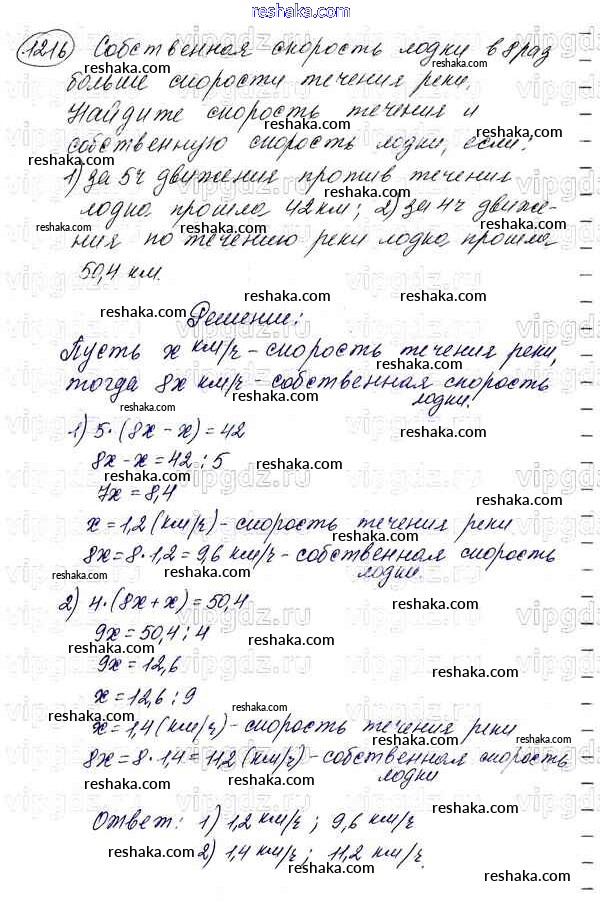 reshaka.com
1216 Собственная скорость лодки в 8 раз
больше скорости течения реки.
Найдите скорость течения и
собственную скорость лодки, если:
1) за 5 ч движения против течения
лодка прошла 42 км; 2) за 4 ч движе-
ния по течению реки лодка прошла
50,4 км.
Решение:
Пусть x км/ч - скорость течения реки,
тогда 8x км/ч - собственная скорость
лодки.
1) 5·(8x - x) = 42
8x - x = 42 : 5
7x = 8,4
x = 1,2 (км/ч) - скорость течения реки
8x = 8 · 1,2 = 9,6 км/ч - собственная скорость
лодки.
2) 4·(8x + x) = 50,4
9x = 50,4 : 4
9x = 12,6
x = 12,6 : 9
x = 1,4 (км/ч) - скорость течения реки
8x = 8 · 1,4 = 11,2 (км/ч) - собственная скорость
лодки
Ответ: 1) 1,2 км/ч ; 9,6 км/ч
2) 1,4 км/ч ; 11,2 км/ч.